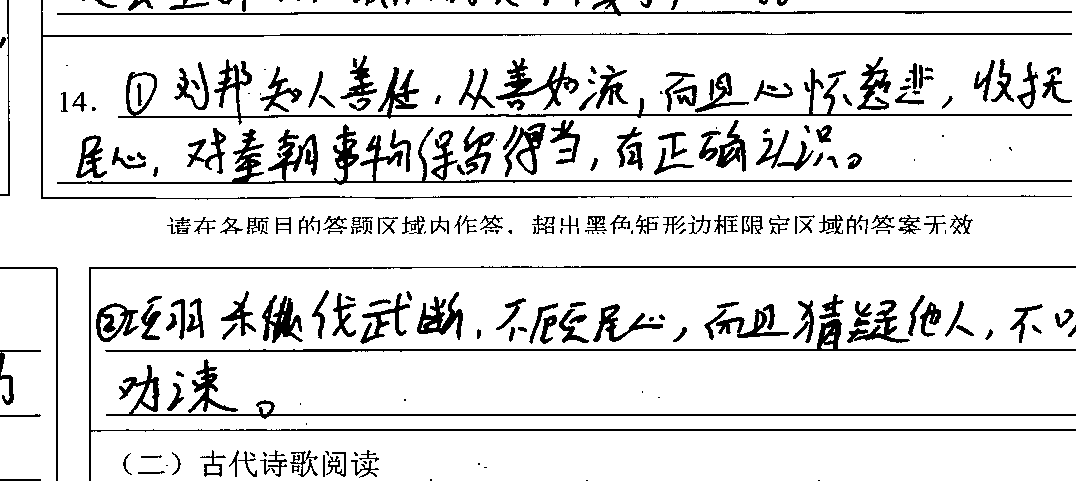 14. ①刘邦知人善任，从善如流，而且心怀慈悲，收抚
民心，对秦朝事物保留得当，有正确认识。
请在各题目的答题区域内作答，超出黑色矩形边框限定区域的答案无效
②项羽杀伐武断，不顾民心，而且猜疑他人，不
劝谏。
（二）古代诗歌阅读